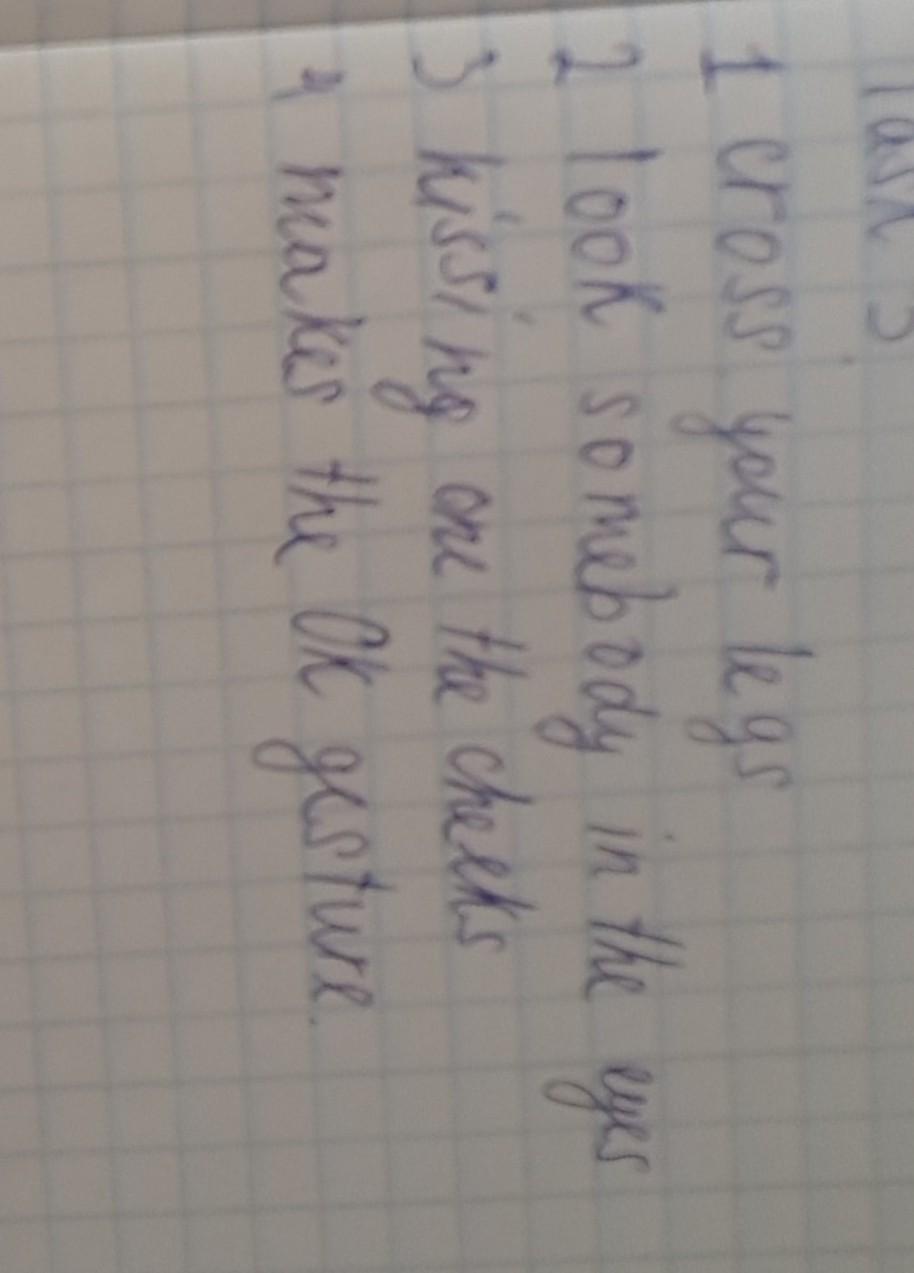 Task 3
1 cross your legs
2 look somebody in the eyes
3 kissing one the cheeks
4 makes the OK gesture.